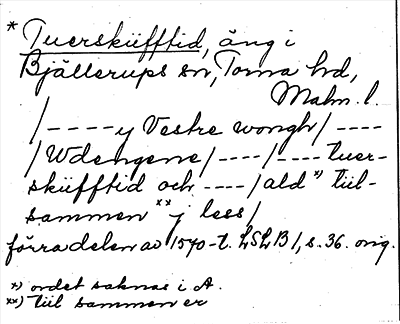 * Tuerskiifftid, äng i
Bjällerups sn, Torna hd,
Malm. l.
/----y Vestre wongh/----
/Wdengene/----/----tuer-
skiifftid och ----/ald *) tiil-
sammen **) j lees/
förra delen av 1570-t. LSLB 1, s. 36. orig.
*) ordet saknas i A.
**) tiil sammen er